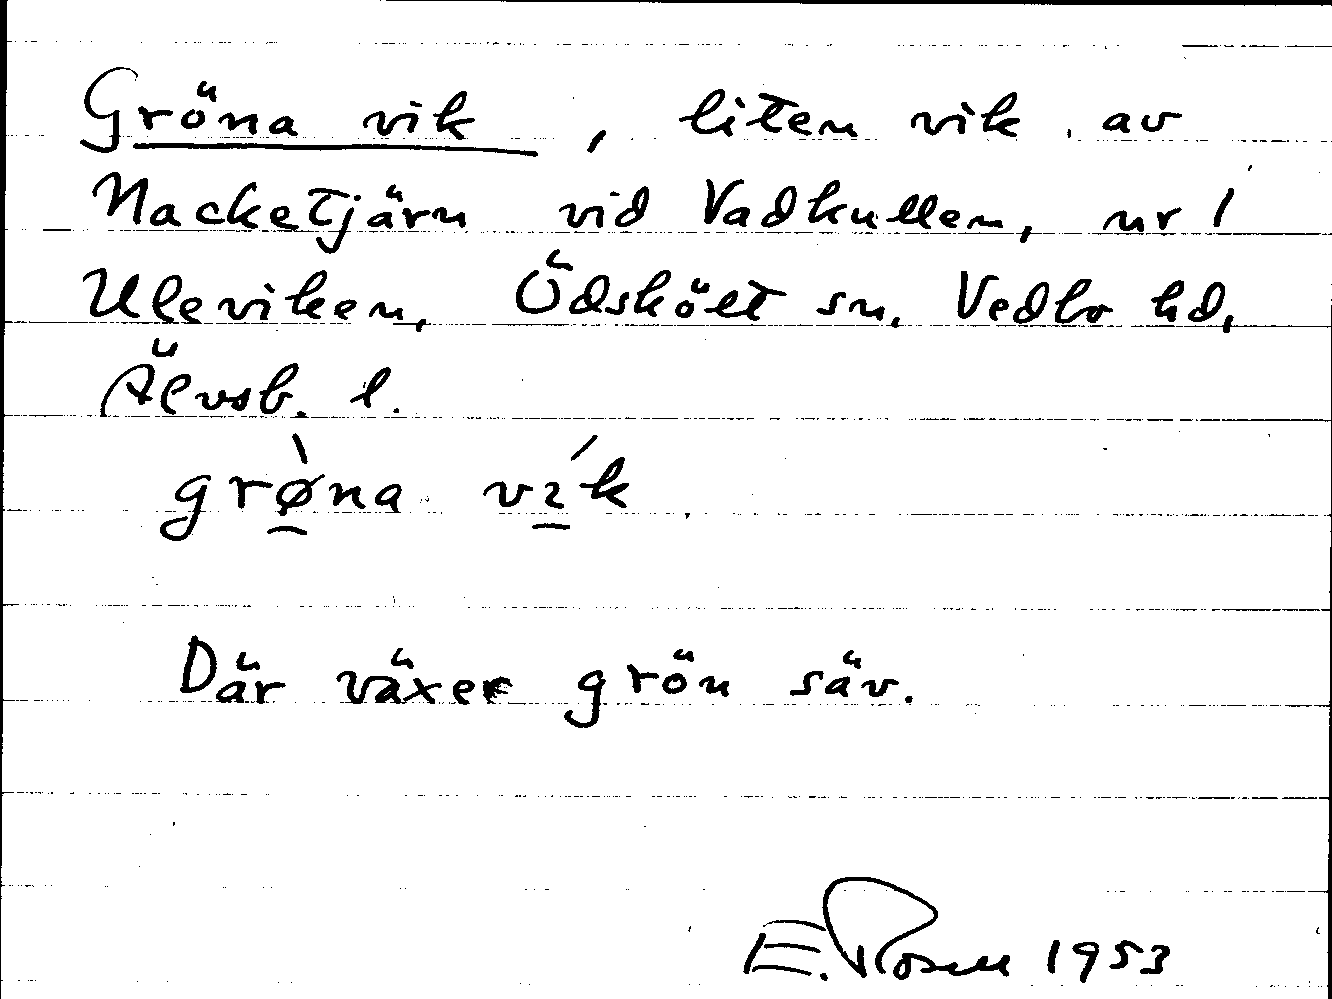 Gröna vik, liten vik av
Nacketjärn vid Vadkullen, nr 1
Uleviken, Ödskölt sn, Vedbo hd,
Älvsb. l.
grø̀na vík
Där växer grön säv.
E. Rosell 1953